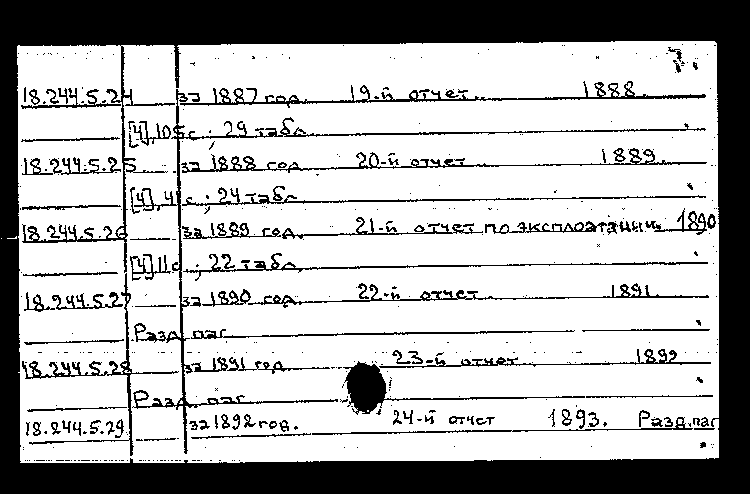 7.
18.244.5.24 за 1887 год. 19-й отчет. 1888.
[4], 105 с.; 29 табл.
18.244.5.25 за 1888 год 20-й отчет 1889.
[4], 41 с.; 24 табл
18.244.5.26 за 1889 год. 21-й отчет по эксплоатации. 1890
[4] 11 с.; 22 табл.
18.244.5.27 за 1890 год. 22-й отчет. 1891.
Разд. паг.
18.244.5.28 за 1891 год. 23-й отчет. 1892
Разд. паг.
18.244.5.29 за 1892 год. 24-й отчет 1893. Разд. паг